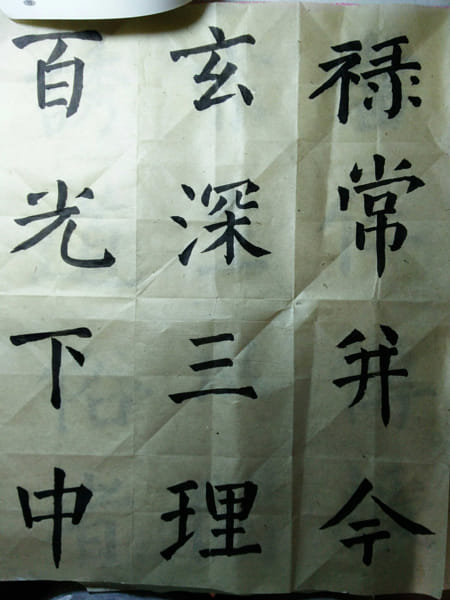 禄常并今
玄深三理
百光下中